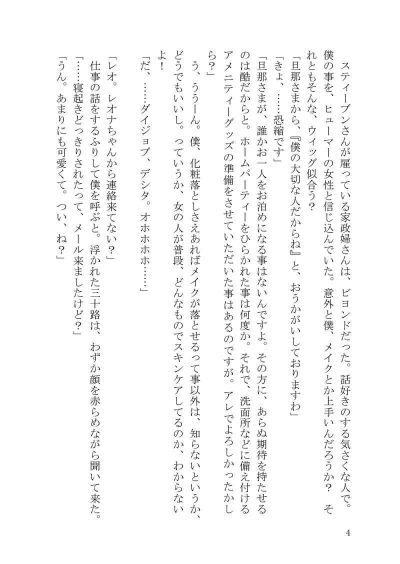 スティーブンさんが雇っている家政婦さんは、ビヨンドだった。話好きのする気さくな人で。
僕の事を、ヒューマーの女性と信じ込んでいた。意外と僕、メイクとか上手いんだろうか？　そ
れともそんな、ウィッグ似合う？
「旦那さまから、『僕の大切な人だからね』と、おうかがいしておりますわ」
「きょ、……恐縮です」
「旦那さまが、誰かお一人をお泊めになる事はないんですよ。その方に、あらぬ期待を持たせる
のは酷だからと。ホームパーティーをひらかれた事は何度か。それで、洗面所などに備え付ける
アメニティーグッズの準備をさせていただいた事はあるのですが。アレでよろしかったかし
ら？」
　う、ううーん。僕、化粧落としさえあればメイクが落とせるって事以外は、知らないというか、
どうでもいいし。っていうか、女の人が普段、どんなものでスキンケアしてるのか、わからない
よ！
「だ、……ダイジョブ、デシタ。オホホホホ……」
「レオ。レオナちゃんから連絡来てない？」
　仕事の話をするふりして僕を呼ぶと。浮かれた三十路は、わずか顔を赤らめながら聞いて来た。
「……寝起きどっきりされたって、メール来ましたけど？」
「うん。あまりにも可愛くて。つい、ね？」
4